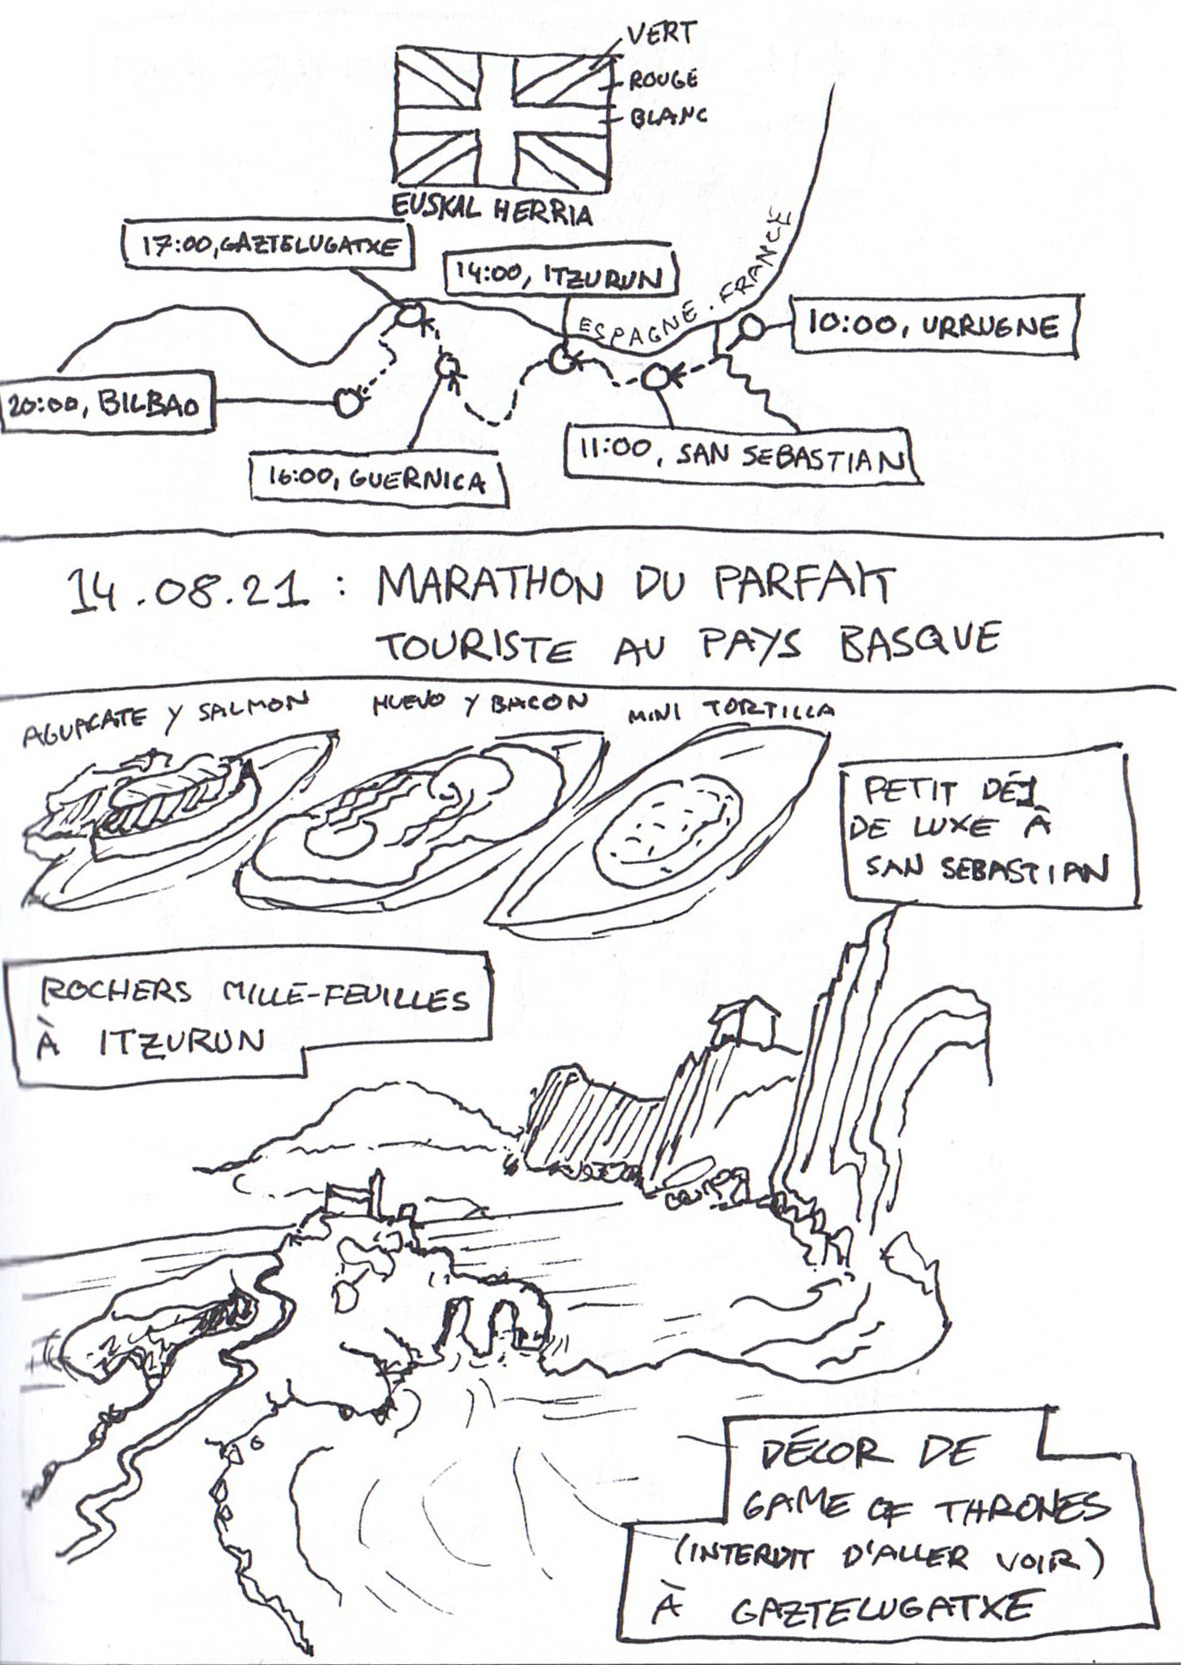 VERT
ROUGE
BLANC
EUSKAL HERRIA
17:00, GAZTELUGATXE
14:00, ITZURUN
ESPAGNE . FRANCE
10:00, URRUGNE
20:00, BILBAO
11:00, SAN SEBASTIAN
16:00, GUERNICA
14.08.21 : MARATHON DU PARFAIT
TOURISTE AU PAYS BASQUE
AGUACATE Y SALMON
HUEVO Y BACON
MINI TORTILLA
PETIT DÉJ
DE LUXE À
SAN SEBASTIAN
ROCHERS MILLE-FEUILLES
À ITZURUN
DÉCOR DE
GAME OF THRONES
(INTERDIT D'ALLER VOIR)
À GAZTELUGATXE